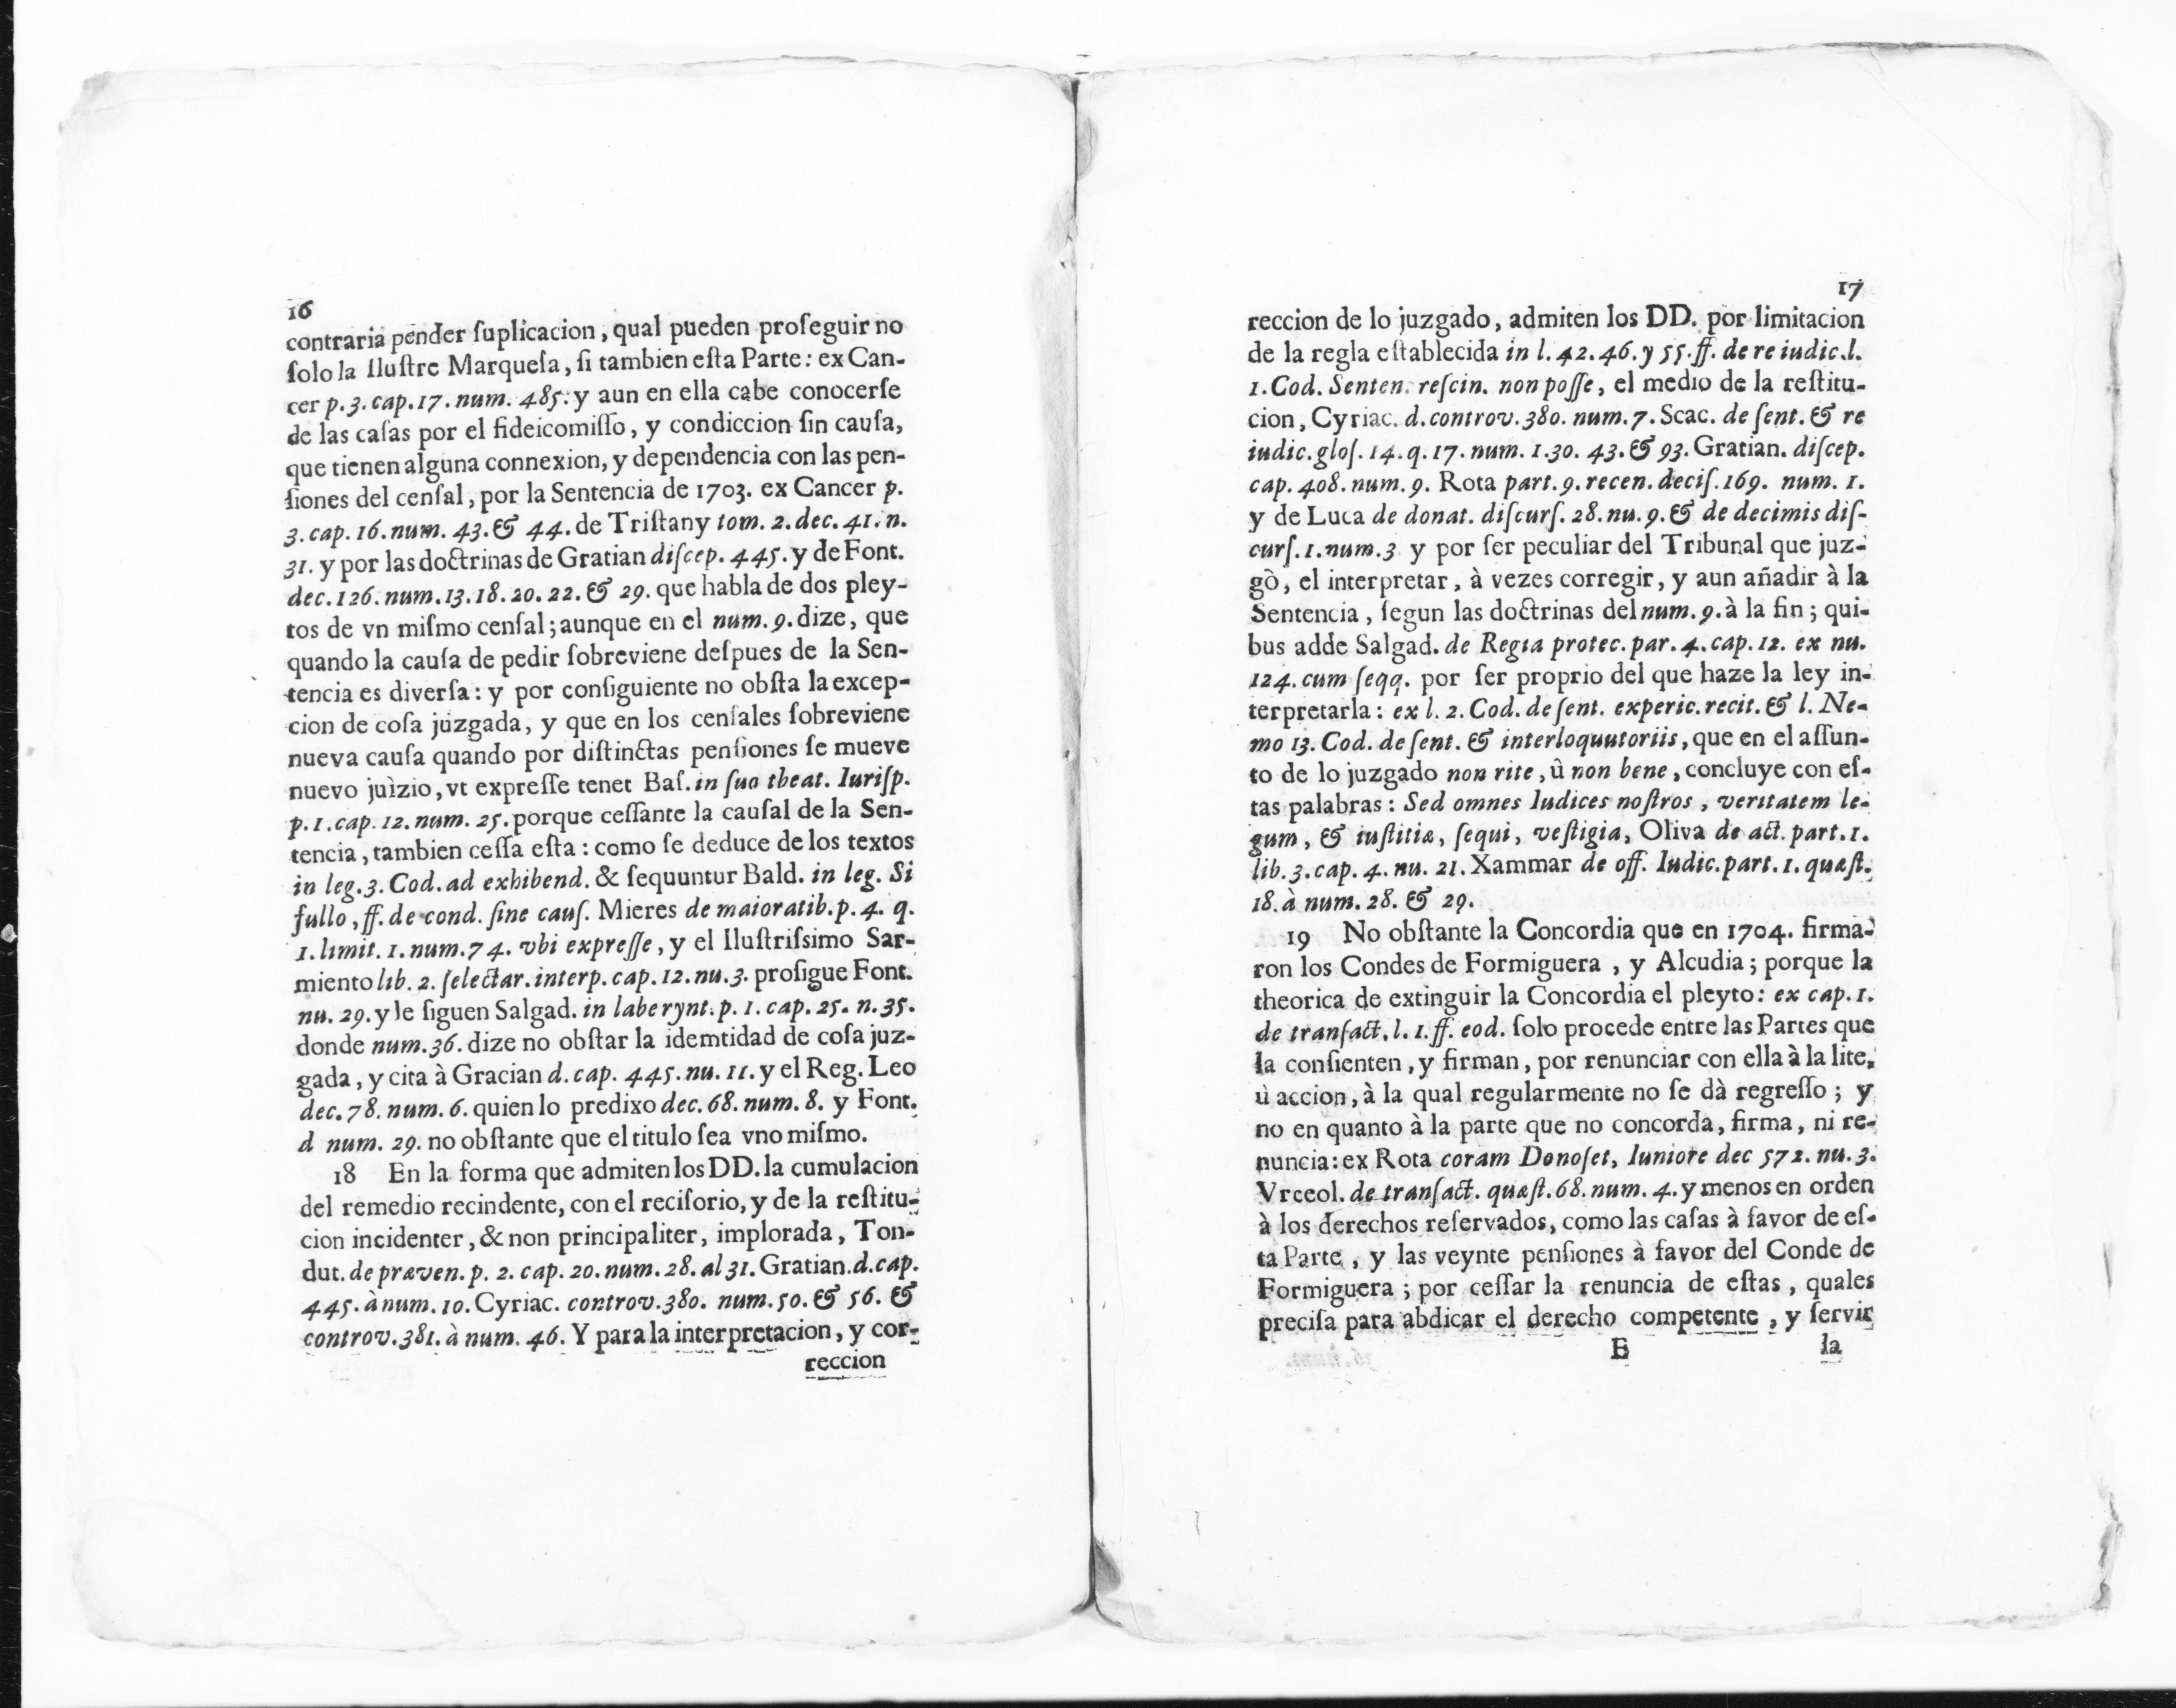 16
contraria pender ſuplicacion, qual pueden proſeguir no
ſolo la Iluſtre Marqueſa, ſi tambien eſta Parte: ex Can-
cer p. 3. cap. 17. num. 485. y aun en ella cabe conocerſe
de las caſas por el fideicomiſſo, y condiccion ſin cauſa,
que tienen alguna connexion, y dependencia con las pen-
ſiones del cenſal, por la Sentencia de 1703. ex Cancer p.
3. cap. 16. num. 43. & 44. de Triſtany tom. 2. dec. 41. n.
31. y por las doctrinas de Gratian diſcep. 445. y de Font.
dec. 126. num. 13. 18. 20. 22. & 29. que habla de dos pley-
tos de vn miſmo cenſal; aunque en el num. 9. dize, que
quando la cauſa de pedir ſobreviene deſpues de la Sen-
tencia es diverſa: y por conſiguiente no obſta la excep-
cion de coſa juzgada, y que en los cenſales ſobreviene
nueva cauſa quando por diſtinctas penſiones ſe mueve
nuevo juìzio, vt expreſſe tenet Baſ. in ſuo theat. Iuriſp.
p. 1. cap. 12. num. 25. porque ceſſante la cauſal de la Sen-
tencia, tambien ceſſa eſta: como ſe deduce de los textos
in leg. 3. Cod. ad exhibend. & ſequuntur Bald. in leg. Si
fullo, ff. de cond. ſine cauſ. Mieres de maioratib. p. 4. q.
1. limit. 1. num. 74. vbi expreſſe, y el Iluſtriſsimo Sar-
miento lib. 2. ſelectar. interp. cap. 12. nu. 3. proſigue Font.
nu. 29. y le ſiguen Salgad. in laberynt. p. 1. cap. 25. n. 35.
donde num. 36. dize no obſtar la idemtidad de coſa juz-
gada, y cita à Gracian d. cap. 445. nu. 11. y el Reg. Leo
dec. 78. num. 6. quien lo predixo dec. 68. num. 8. y Font.
d num. 29. no obſtante que el titulo ſea vno miſmo.
18 En la forma que admiten los DD. la cumulacion
del remedio recindente, con el reciſorio, y de la reſtitu-
cion incidenter, & non principaliter, implorada, Ton-
dut. de præven. p. 2. cap. 20. num. 28. al 31. Gratian. d. cap.
445. à num. 10. Cyriac. controv. 380. num. 50. & 56. &
controv. 381. à num. 46. Y para la interpretacion, y cor-
reccion
17
reccion de lo juzgado, admiten los DD. por limitacion
de la regla eſtablecida in l. 42. 46. y 55. ff. de re iudic. l.
1. Cod. Senten. reſcin. non poſſe, el medio de la reſtitu-
cion, Cyriac. d. controv. 380. num. 7. Scac. de ſent. & re
iudic. gloſ. 14. q. 17. num. 1. 30. 43. & 93. Gratian. diſcep.
cap. 408. num. 9. Rota part. 9. recen. deciſ. 169. num. 1.
y de Luca de donat. diſcurſ. 28. nu. 9. & de decimis diſ-
curſ. 1. num. 3 y por ſer peculiar del Tribunal que juz-
gò, el interpretar, à vezes corregir, y aun añadir à la
Sentencia, ſegun las doctrinas del num. 9. à la fin; qui-
bus adde Salgad. de Regia protec. par. 4. cap. 12. ex nu.
124. cum ſeqq. por ſer proprio del que haze la ley in-
terpretarla: ex l. 2. Cod. de ſent. experic. recit. & l. Ne-
mo 13. Cod. de ſent. & interloquutoriis, que en el aſſun-
to de lo juzgado non rite, ù non bene, concluye con eſ-
tas palabras: Sed omnes Iudices noſtros, veritatem le-
gum, & iuſtitiæ, ſequi, veſtigia, Oliva de act. part. 1.
lib. 3. cap. 4. nu. 21. Xammar de off. Iudic. part. 1. quæſt.
18. à num. 28. & 29.
19 No obſtante la Concordia que en 1704. firma-
ron los Condes de Formiguera, y Alcudia; porque la
theorica de extinguir la Concordia el pleyto: ex cap. 1.
de tranſact. l. 1. ff. eod. ſolo procede entre las Partes que
la conſienten, y firman, por renunciar con ella à la lite,
ù accion, à la qual regularmente no ſe dà regreſſo; y
no en quanto à la parte que no concorda, firma, ni re-
nuncia: ex Rota coram Donoſet, Iuniore dec 572. nu. 3.
Vrceol. de tranſact. quæſt. 68. num. 4. y menos en orden
à los derechos reſervados, como las caſas à favor de eſ-
ta Parte, y las veynte penſiones à favor del Conde de
Formiguera; por ceſſar la renuncia de eſtas, quales
preciſa para abdicar el derecho competente, y ſervir
E la